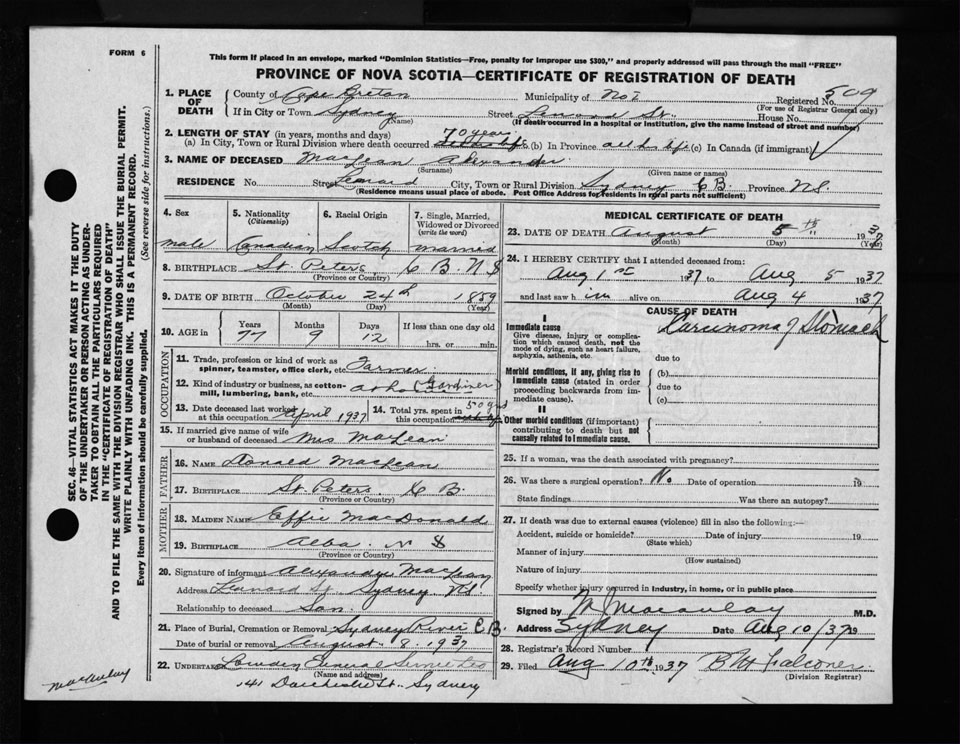 FORM 6
This form if placed in an envelope, marked "Dominion Statistics—Free, penalty for improper use $300," and properly addressed will pass through the mail "FREE"
PROVINCE OF NOVA SCOTIA—CERTIFICATE OF REGISTRATION OF DEATH
1. PLACE OF DEATH County of Cape Breton Municipality of No 1 Registered No. 509
(For use of Registrar General only)
If in City or Town Sydney Street St. House No.
(Name) (If death occurred in a hospital or institution, give the name instead of street and number)
2. LENGTH OF STAY (in years, months and days) 70 years
(a) In City, Town or Rural Division where death occurred all his life (b) In Province all his life (c) In Canada (if immigrant)
3. NAME OF DECEASED MacLean Alexander
(Surname) (Given name or names)
RESIDENCE No. Street Leonard City, Town or Rural Division Sydney C B. Province N.S.
(Residence means usual place of abode. Post Office Address for residents in rural parts not sufficient)
4. Sex male
5. Nationality (Citizenship) Canadian
6. Racial Origin Scotch
7. Single, Married, Widowed or Divorced (write the word) married
8. BIRTHPLACE St. Peters C. B. N S
(Province or Country)
9. DATE OF BIRTH October 24th 1859
(Month) (Day) (Year)
10. AGE in Years 77 Months 9 Days 12 If less than one day old hrs. or min.
OCCUPATION
11. Trade, profession or kind of work as spinner, teamster, office clerk, etc. Farmer
12. Kind of industry or business, as cotton-mill, lumbering, bank, etc. (Gardiner)
13. Date deceased last worked at this occupation April 1937
14. Total yrs. spent in this occupation 50 yrs
15. If married give name of wife or husband of deceased Mrs MacLean
FATHER
16. NAME Donald MacLean
17. BIRTHPLACE St Peters C B.
(Province or Country)
MOTHER
18. MAIDEN NAME Effie MacDonald
19. BIRTHPLACE Alba. N S
(Province or Country)
20. Signature of informant Alexander MacLean
Address Leonard St. Sydney N.S.
Relationship to deceased Son.
21. Place of Burial, Cremation or Removal Sydney River C.B.
Date of burial or removal August 8 1937
22. UNDERTAKER General Service
(Name and address)
141 Dorchester St. Sydney
MEDICAL CERTIFICATE OF DEATH
23. DATE OF DEATH August 5th 1937
(Month) (Day) (Year)
24. I HEREBY CERTIFY that I attended deceased from:
Aug 1st 1937 to Aug 5 1937
and last saw him alive on Aug 4 1937
CAUSE OF DEATH
I
Immediate cause Carcinoma of Stomach
Give disease, injury or complication which caused death, not the mode of dying, such as heart failure, asphyxia, asthenia, etc.
due to
Morbid conditions, if any, giving rise to Immediate cause (stated in order proceeding backwards from immediate cause).
(b)
due to
(c)
II
Other morbid conditions (if important) contributing to death but not causally related to immediate cause.
25. If a woman, was the death associated with pregnancy?
26. Was there a surgical operation? No Date of operation 19
State findings Was there an autopsy?
27. If death was due to external causes (violence) fill in also the following:—
Accident, suicide or homicide? Date of injury 19
(State which)
Manner of injury
(How sustained)
Nature of injury
Specify whether injury occurred in industry, in home, or in public place
Signed by Macaulay M.D.
Address Sydney Date Aug 10/37 19
28. Registrar's Record Number
29. Filed Aug 10th 1937 Falconer
(Division Registrar)
SEC. 46—VITAL STATISTICS ACT MAKES IT THE DUTY
OF THE UNDERTAKER OR PERSON ACTING AS UNDER-
TAKER TO OBTAIN ALL THE PARTICULARS REQUIRED
IN THE "CERTIFICATE OF REGISTRATION OF DEATH"
AND TO FILE THE SAME WITH THE DIVISION REGISTRAR WHO SHALL ISSUE THE BURIAL PERMIT.
WRITE PLAINLY WITH UNFADING INK. THIS IS A PERMANENT RECORD.
Every item of information should be carefully supplied. (See reverse side for instructions.)
MacAulay